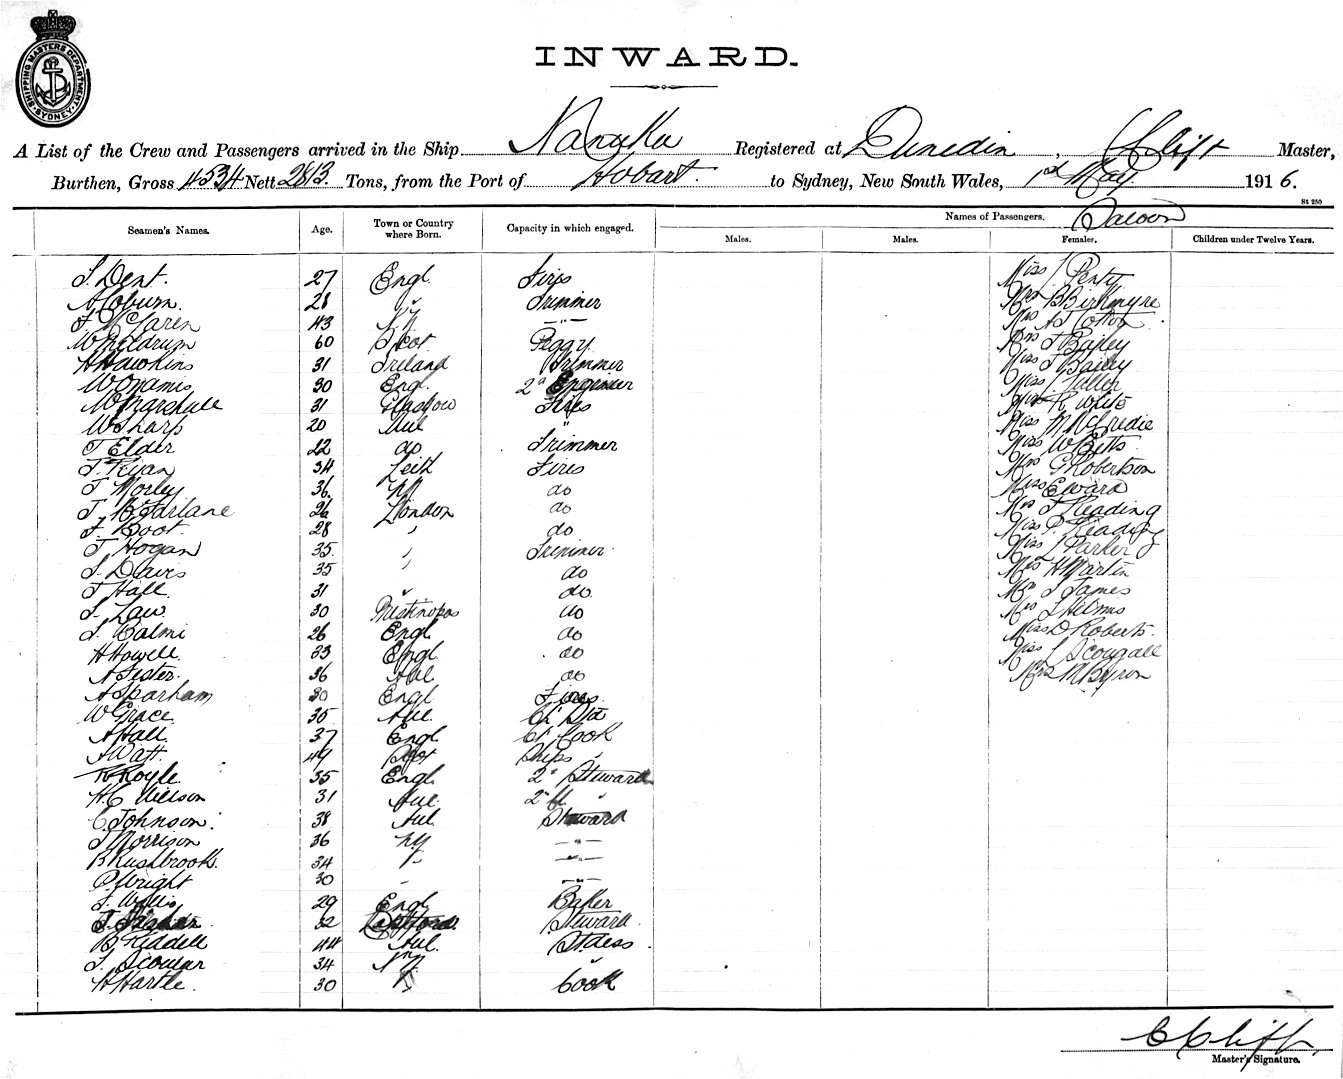 SHIPPING MASTERS DEPARTMENT
SYDNEY
INWARD.
A List of the Crew and Passengers arrived in the Ship Registered at Dunedin, C Cliff Master,
Burthen, Gross 4534 Nett 2813. Tons, from the Port of Hobart. to Sydney, New South Wales, 1st May. 1916.
S1 250
Seamen's Names. Age. Town or Country where Born. Capacity in which engaged. Names of Passengers. Saloon
Males. Males. Females. Children under Twelve Years.
S. Dent. 27 Engl. Fires Miss Penty
A Coburn. 28 " Trimmer Mrs B Birkmyre
McLaren 43 —"— Mrs A J Cotton
60 Scot Peggy Mrs J Bailey
H Hawkins 31 Ireland Trimmer Miss J Bailey
30 Engl. 2d Engineer Miss
W Marshall 31 Glasgow Fires R White
W Sharp 20 " Miss M McCredie
T Elder 22 do Trimmer Miss W Betts
T. Ryan 34 Leith Fires Mrs G Robertson
T Morley 36 do Miss E Ward
T McFarlane 26 London do Mrs Reading
F. Boot 28 " do Miss P Reading
T Hogan 35 " Trimmer Miss L Parker
S. Davis 35 " do Mrs H Martin
T Hall 31 " do. Mrs J James
S. Law. 30 do Mrs S Helms
S. Calmi 26 Engl do Miss D Roberts.
H Howell. 33 Engl. do Miss Scougall
A Lester. 36 do Mrs M Byron
A Sparham 30 Engl Fires.
W Grace 35 Aul.
A Hall. 37 Engl. Ch Cook
A Watt. 49 Scot Ships "
R Royle 35 Engl. 2d Steward
H. C Wilson 31 Aul. 2d
C Johnson. 38 Aul. Steward
T Morrison 36 NZ —"—
B Rushbrook. 34 " —"—
P. Wright 30 " —"—
S. Willis 29 Engl Baker
32 Steward
B Riddell 44 Aul. Stdess.
S. Scoular 34 NZ "
H Hartle. 30 " Cook
C Cliff,
Master's Signature.